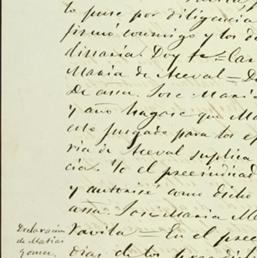 to puse por diligencia
firmó conmigo y los de
disnaria. Doy fe = Car
Maria de Aceval = D
De asa. Jose Maria
y año hagase que Ma
este juzgado para los ef
ria de Aceval suplica
cia. Yo el preeminad
y autorisé como dicho
asa. Jose Maria M
Davila = En el prece
dias de los
Declaracion
de Matias
Gomez